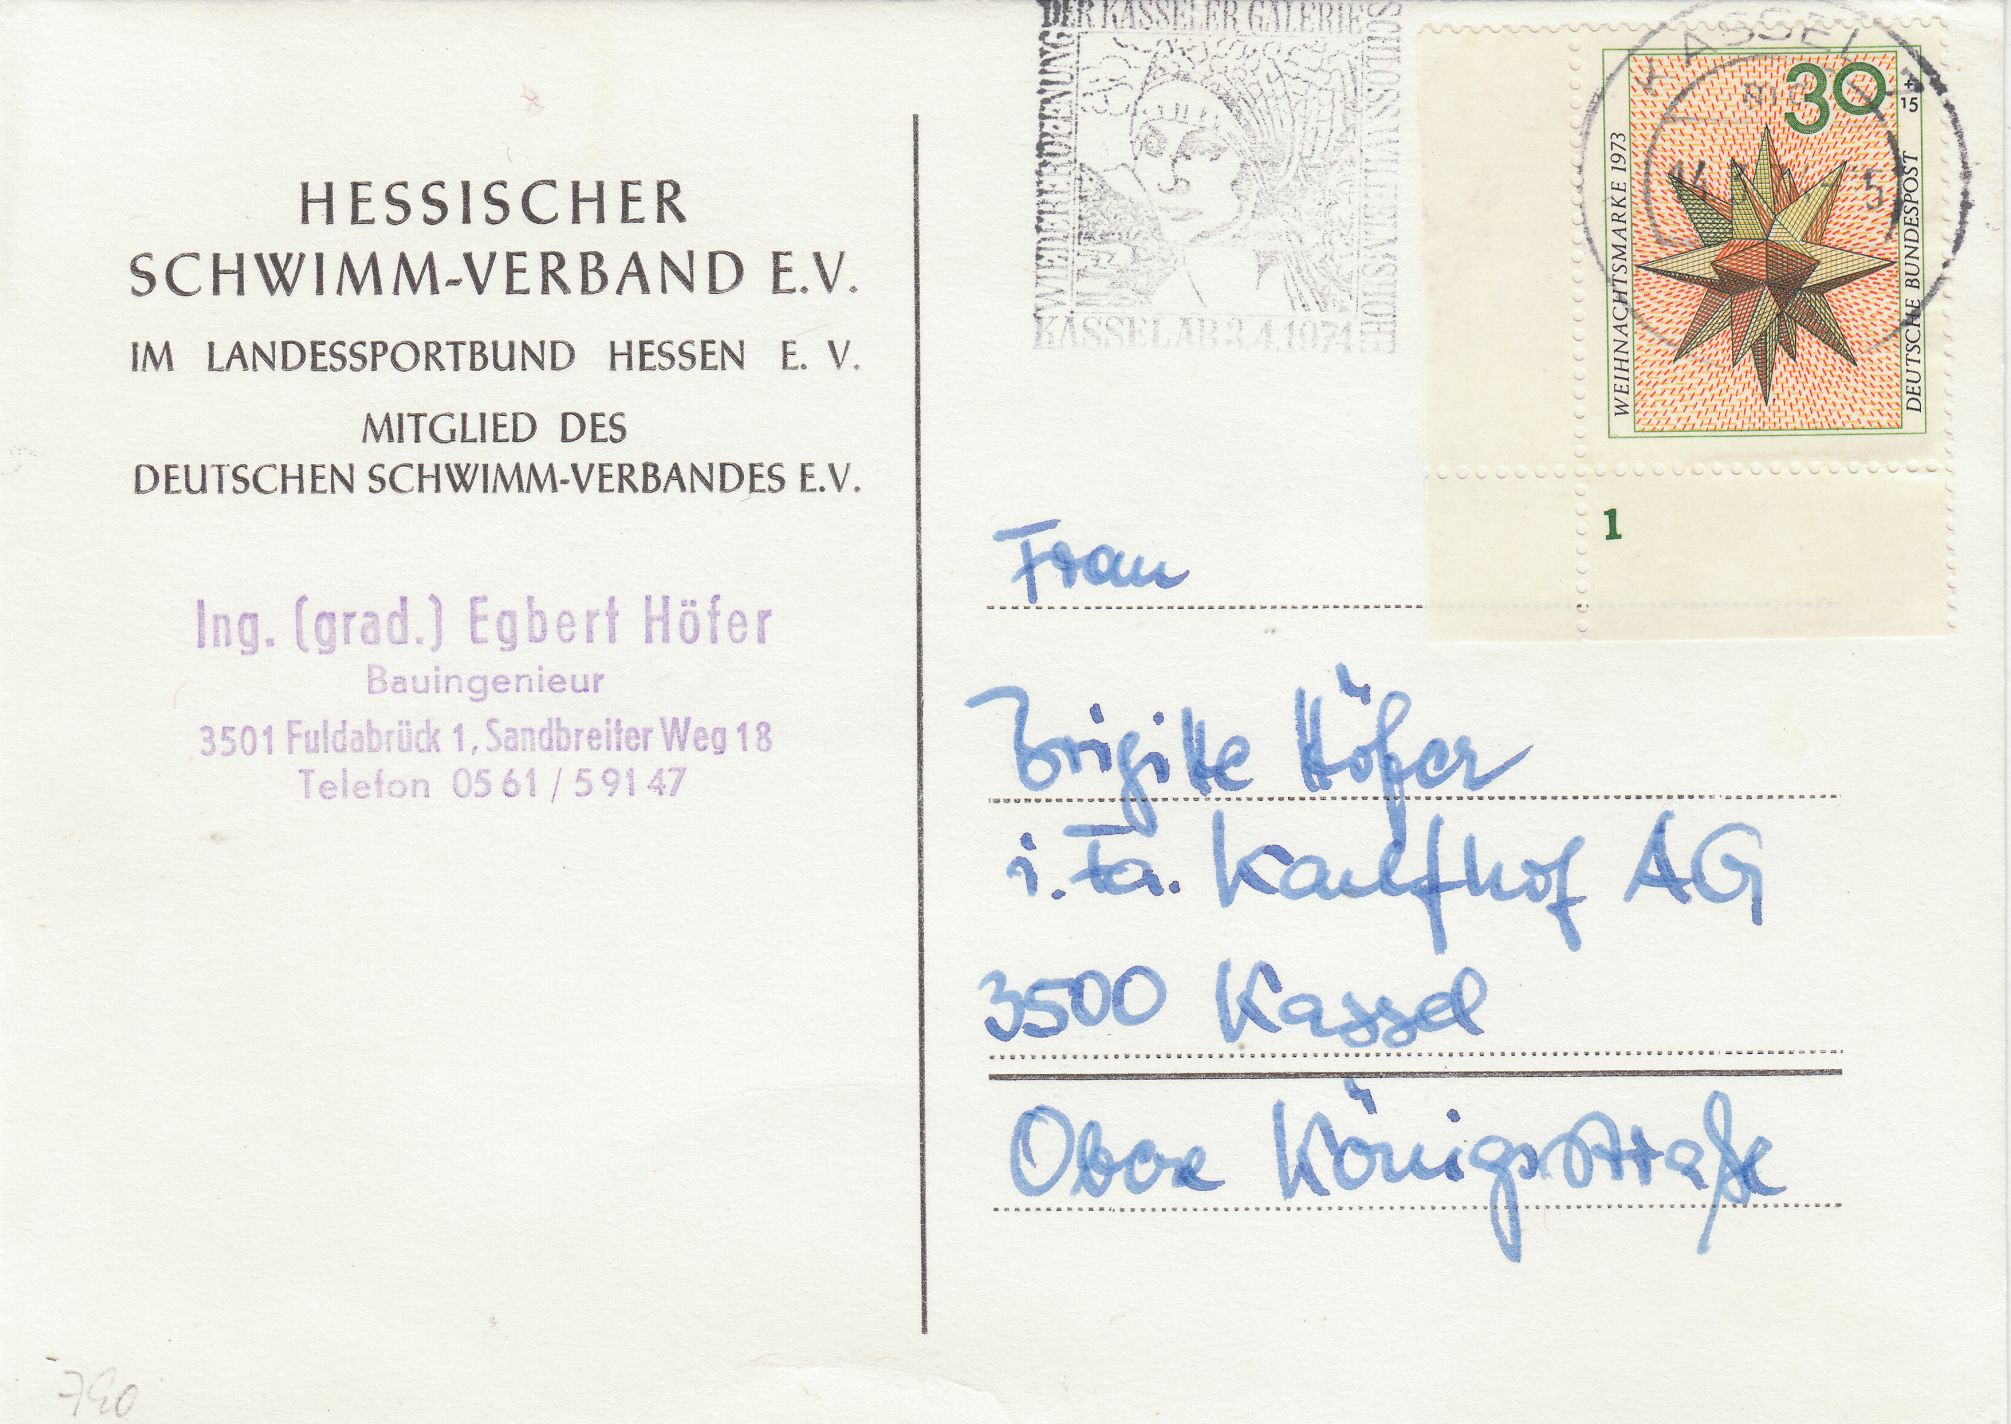 HESSISCHER
SCHWIMM-VERBAND E.V.
IM LANDESSPORTBUND HESSEN E. V.
MITGLIED DES
DEUTSCHEN SCHWIMM-VERBANDES E.V.
Ing. (grad.) Egbert Höfer
Bauingenieur
3501 Fuldabrück 1, Sandbreiter Weg 18
Telefon 05 61 / 5 91 47
WIEDERERÖFFNUNG
DER KASSELER GALERIE
SCHLOSS WILHELMSHÖHE
KASSEL AB 3.4.1974
KASSEL
30
+
15
WEIHNACHTSMARKE 1973
DEUTSCHE BUNDESPOST
1
Frau
Brigitte Höfer
i. Fa. Kaufhof AG
3500 Kassel
Obere Königsstraße